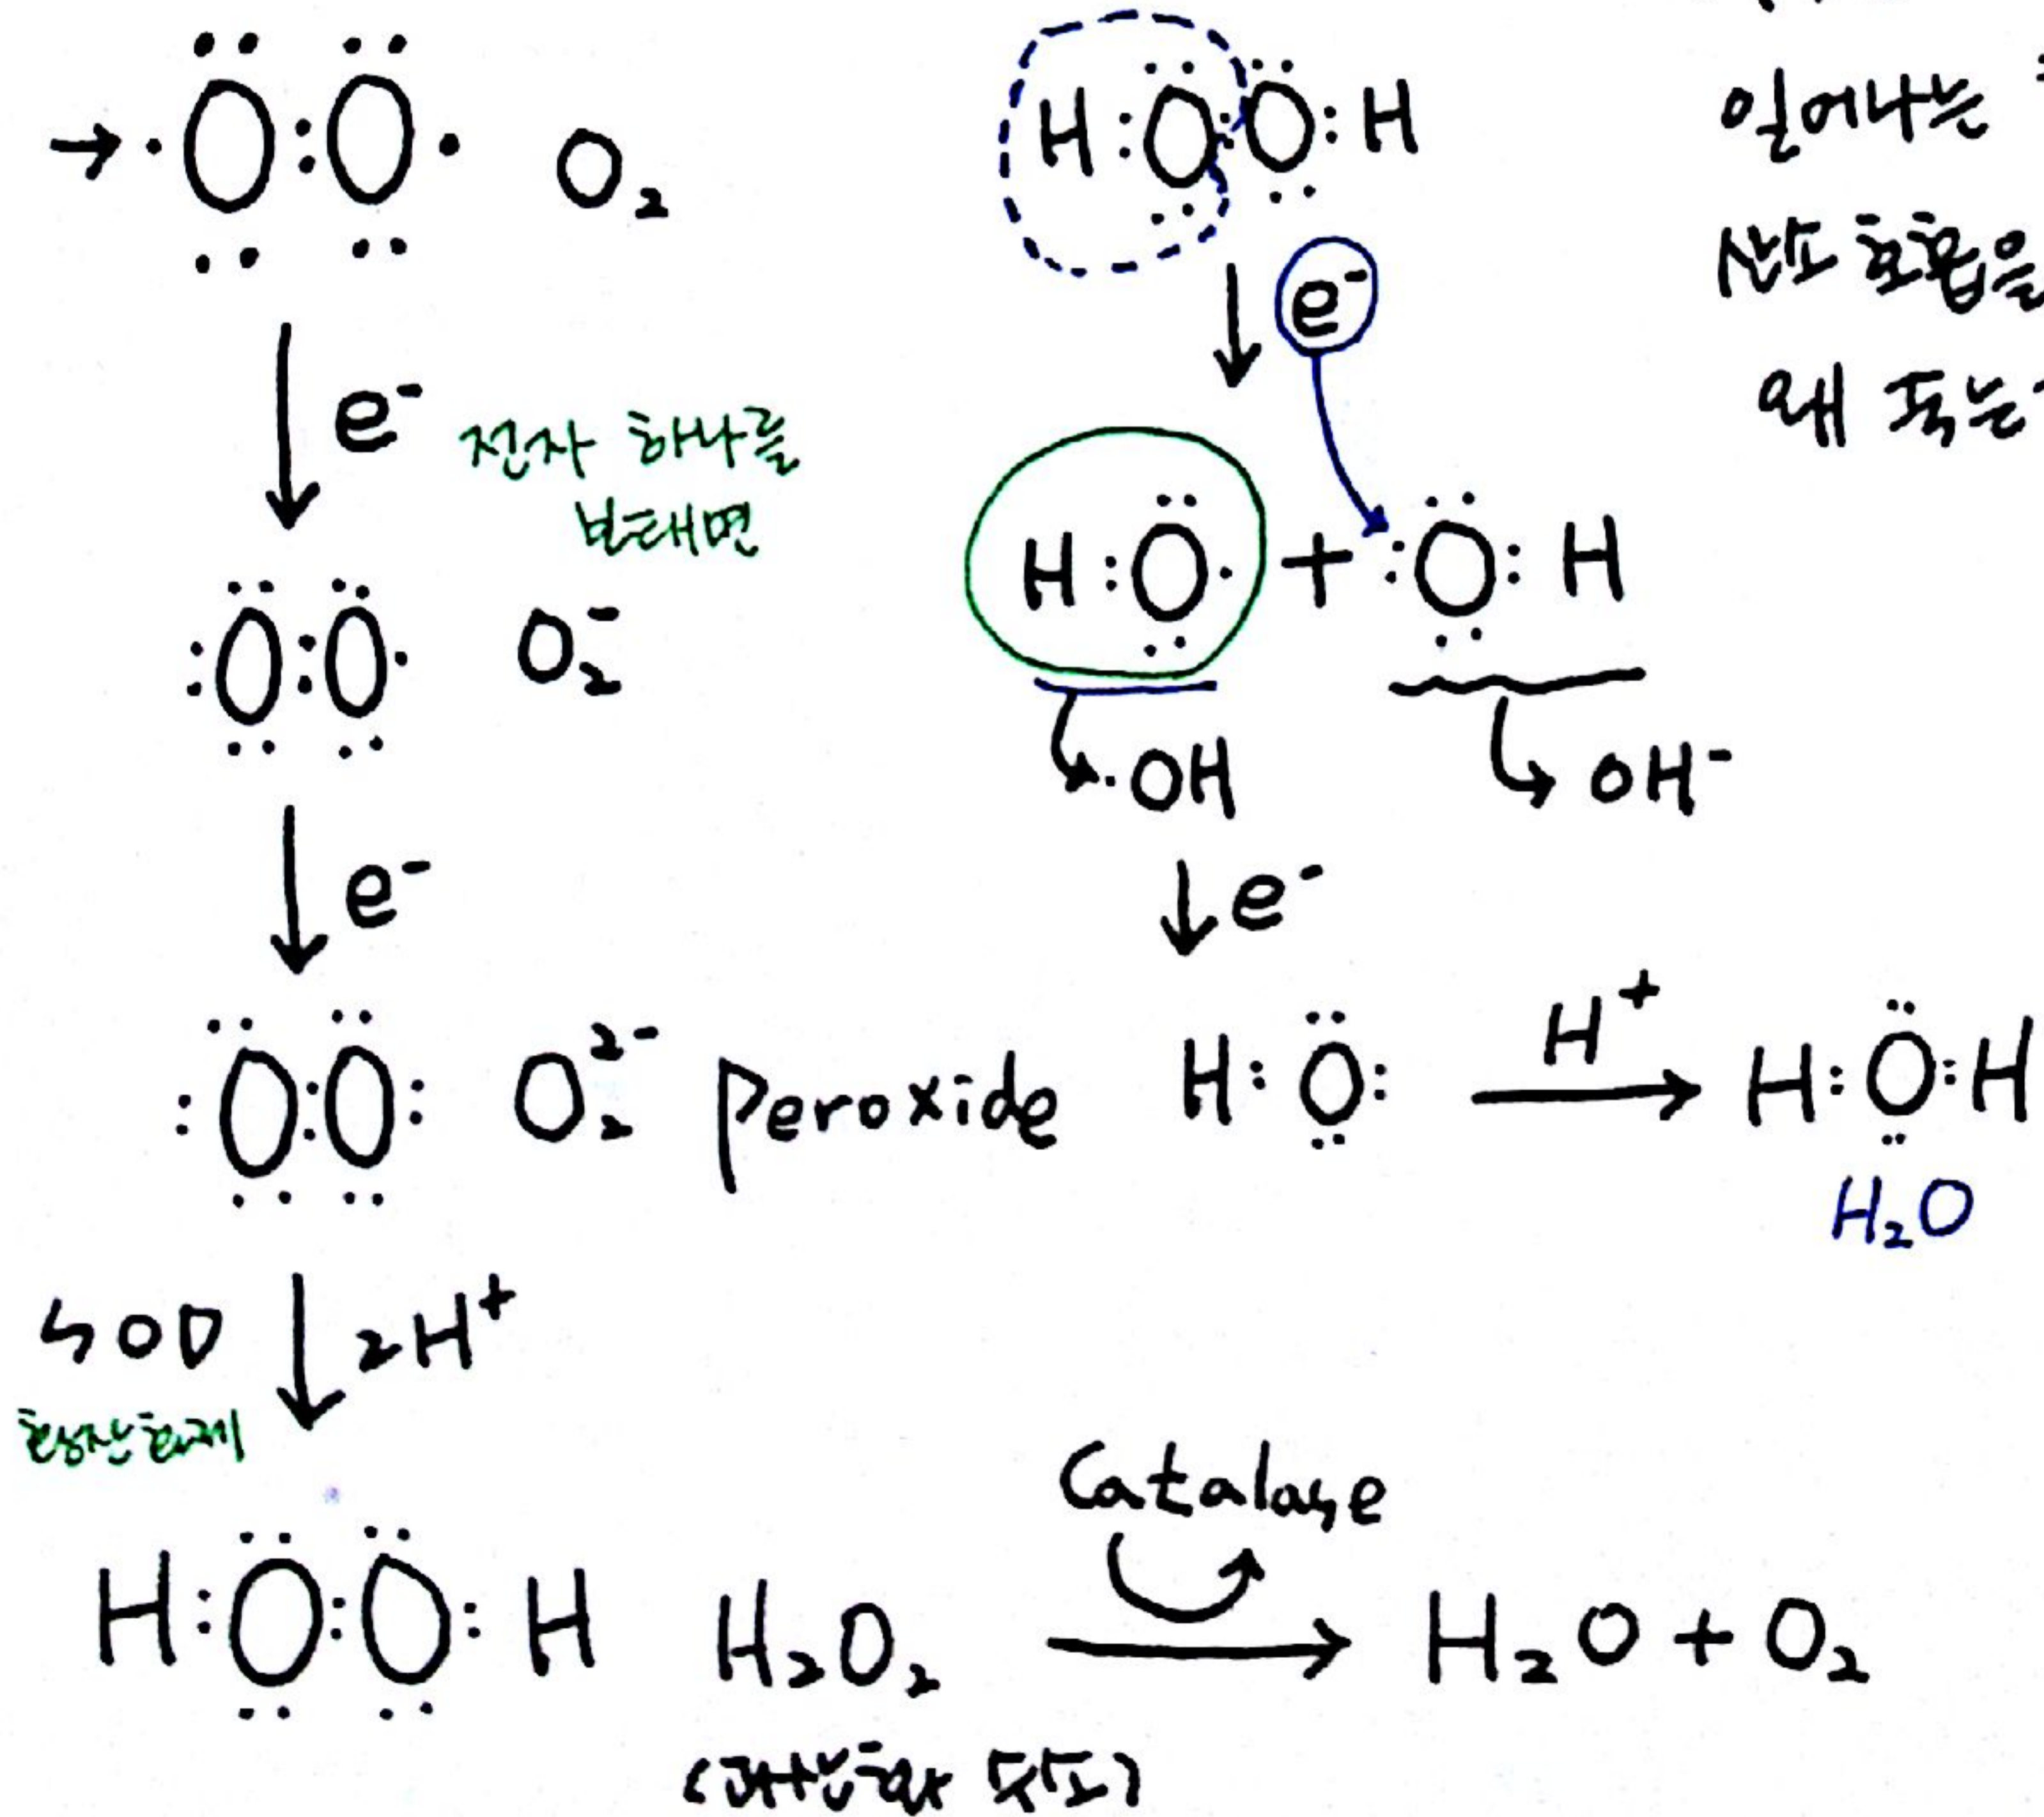 → ·O:O· O₂
↓ e⁻ 전자 하나를
보태면
:O:O· O₂⁻
↓ e⁻
:O:O: O₂²⁻ peroxide
SOD ↓ 2H⁺
항산화제
H:O:O:H H₂O₂ → H₂O + O₂
Catalase
(과산화 수소)
H:O:O:H
↓ e⁻
H:O· + :O:H
·OH OH⁻
↓ e⁻
H:O: H⁺ → H:O:H
H₂O
일어나는
산소 호흡을
왜 죽는